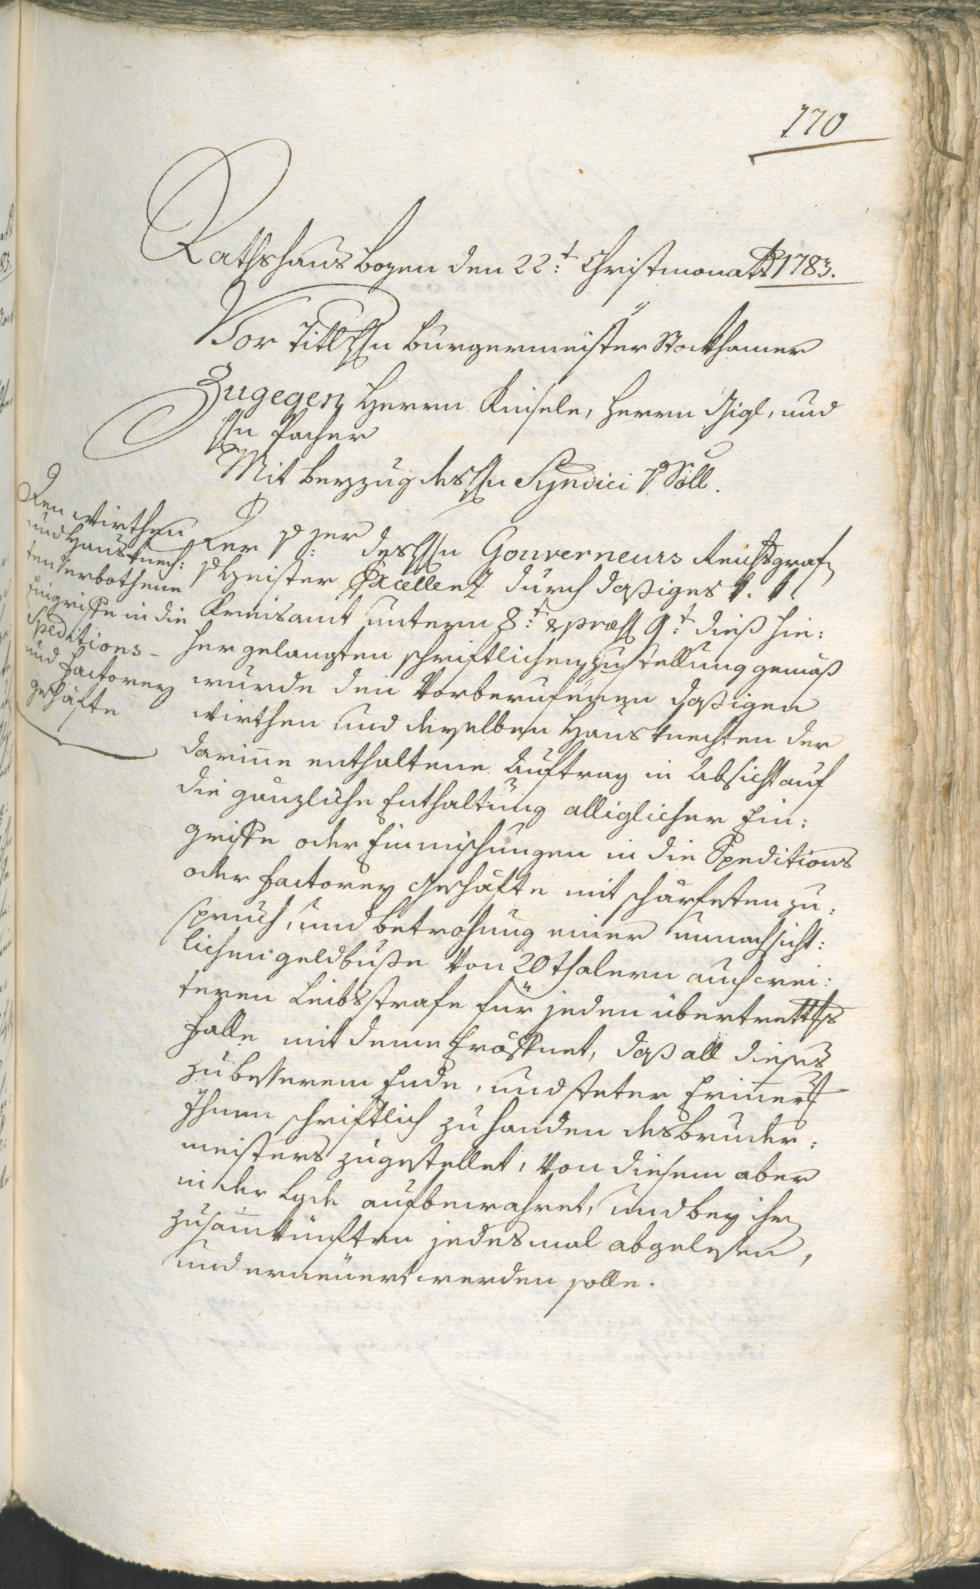 170
Rathshaus Bozen den 22:t Christmonats 1783.
Vor Titl Hn Burgermeister Stockhamer
Zugegen Herrn Kinsele, Herrn Gigl, und
Hn Facher
Mit Beyzug des Hn Syndici v Söll.
Den Wirthen
und Hausknech:
ten verbothene
Eingriffe in die
Speditions-
und Factorey
geschäfte
Der von des Hn Gouverneurs Reichsgrafn
v Heister Excellenz durch daßiges K. K.
Kreisamt untern 8:t & præs 9:t dieß hie:
her gelangten schriftlichen Zustellung gemäß
wurde den Vorberufenen daßigen
Wirthen und derselben Hausknechten der
darinne enthaltene Auftrag in Absicht auf
die gänzliche Enthaltung alliglicher Ein:
griffe oder Einmischungen in die Speditions
oder Factorey Geschäfte mit schärfesten zu:
spruch, und betrohung einer unnachsicht:
lichen geldbuße von 20 thalern auch wei:
teren Leibsstrafe für jeden übertrettungs
Falle mit deme Eröffnet, daß all dieses
zu besserem Ende, und steter Erinerung
Ihnen schriftlich zu handen des bruder:
meisters zugestellet, von diesem aber
in der Lade aufbewahret, und bey ihren
zusamkünften jedesmal abgelesen,
und erneuert werden solle.